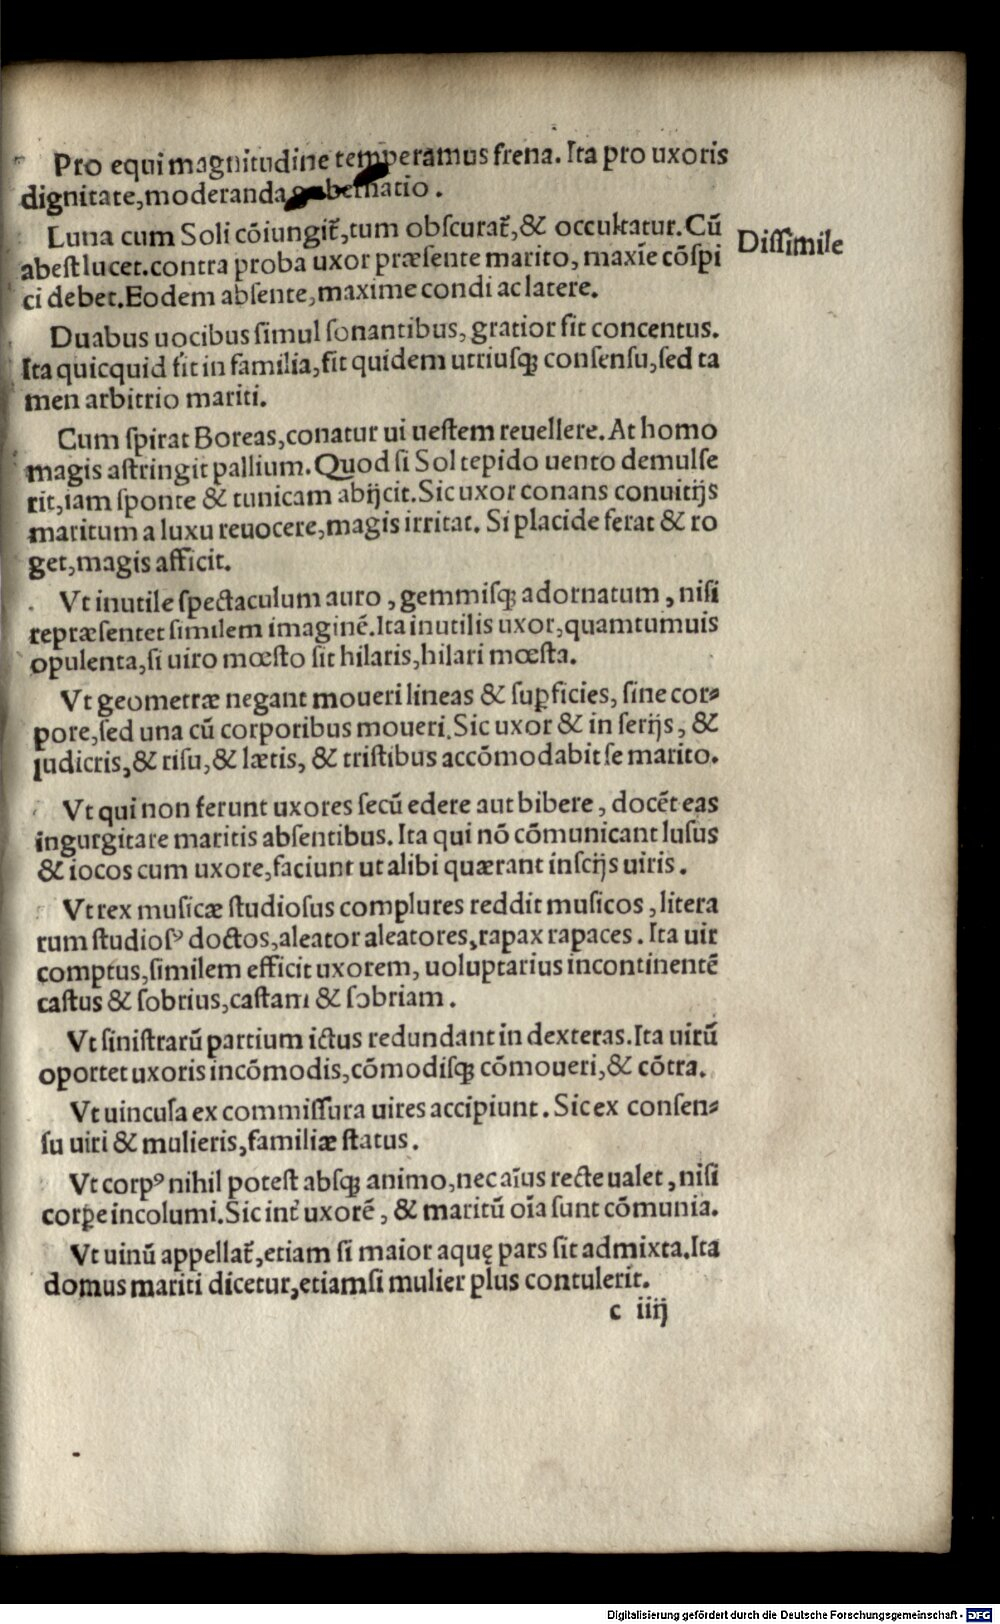 Pro equi magnitudine temperamus frena. Ita pro uxoris
dignitate, moderanda gubernatio.
Luna cum Soli cõiungit᷑, tum obſcurat᷑, & occultatur. Cũ
abeſt lucet. contra proba uxor præſente marito, maxīe cõſpi
ci debet. Eodem abſente, maxime condi ac latere.
Diſſimile
Duabus uocibus ſimul ſonantibus, gratior fit concentus.
Ita quicquid fit in familia, fit quidem utriuſq; conſenſu, ſed ta
men arbitrio mariti.
Cum ſpirat Boreas, conatur ui ueſtem reuellere. At homo
magis aſtringit pallium. Quod ſi Sol tepido uento demulſe
rit, iam ſponte & tunicam abijcit. Sic uxor conans conuitijs
maritum a luxu reuocere, magis irritat. Si placide ferat & ro
get, magis afficit.
Vt inutile ſpectaculum auro, gemmiſq; adornatum, niſi
repræſentet ſimilem imaginẽ. Ita inutilis uxor, quamtumuis
opulenta, ſi uiro mœſto ſit hilaris, hilari mœſta.
Vt geometræ negant moueri lineas & ſuꝑficies, ſine cor⸗
pore, ſed una cũ corporibus moueri. Sic uxor & in ſerijs, &
ludicris, & riſu, & lætis, & triſtibus accõmodabit ſe marito.
Vt qui non ferunt uxores ſecũ edere aut bibere, docẽt eas
ingurgitare maritis abſentibus. Ita qui nõ cõmunicant luſus
& iocos cum uxore, faciunt ut alibi quærant inſcijs uiris.
Vt rex muſicæ ſtudioſus complures reddit muſicos, litera
rum ſtudioſꝰ doctos, aleator aleatores, rapax rapaces. Ita uir
comptus, ſimilem efficit uxorem, uoluptarius incontinentẽ
caſtus & ſobrius, caſtam & ſobriam.
Vt ſiniſtrarũ partium ictus redundant in dexteras. Ita uirũ
oportet uxoris incõmodis, cõmodiſq; cõmoueri, & cõtra.
Vt uincula ex commiſſura uires accipiunt. Sic ex conſen⸗
ſu uiri & mulieris, familiæ ſtatus.
Vt corpꝰ nihil poteſt abſq; animo, nec aīus recte ualet, niſi
corꝑe incolumi. Sic int᷑ uxorẽ, & maritũ oīa ſunt cõmunia.
Vt uinũ appellat᷑, etiam ſi maior aquę pars ſit admixta. Ita
domus mariti dicetur, etiamſi mulier plus contulerit.
c iiij
Digitalisierung gefördert durch die Deutsche Forschungsgemeinschaft - DFG